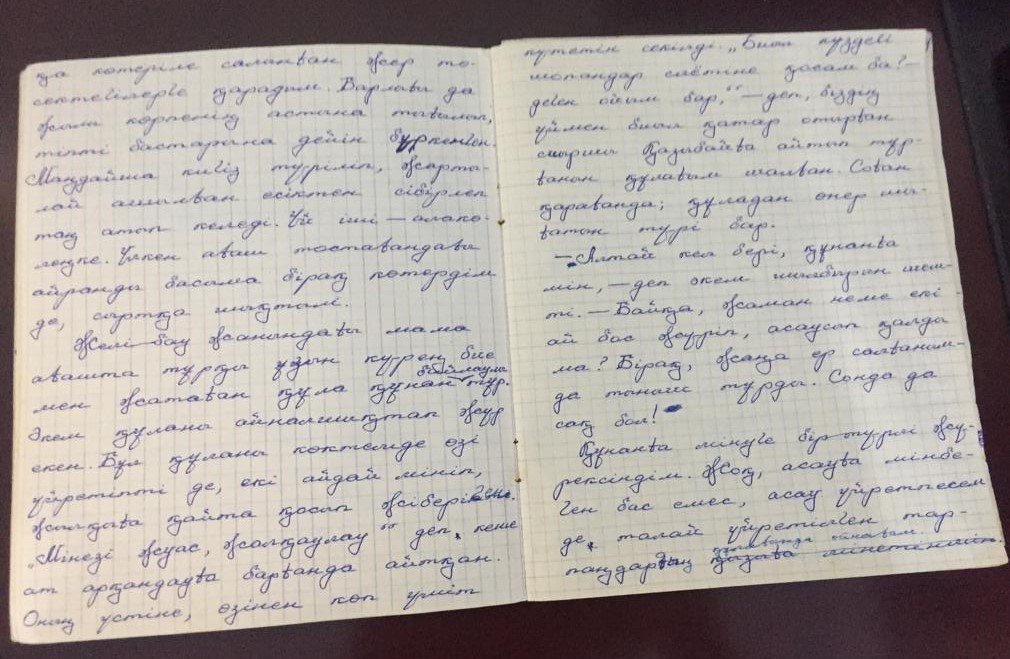 ға көтеріле салынған жер тө-
сектегілерге қарадым. Барлығы да
жылы көрпенің астына тығылып,
тіпті бастарына дейін бүркенген.
Маңдайша кигіз түріліп, жарты-
лай ашылған есіктен сібірлеп
таң атып келеді. Үй іші — алакө-
леңке. Үлкен ағаш тостағандағы
айранды басыма бірақ көтердім
де, сыртқа шықтым.
Желі-бау жанындағы мама
ағашта тұрқы ұзын күрең бие
мен жатаған құла құнан байлаулы тұр.
Әкем құланы айналшықтап жүр
екен. Бұл құланы көктемде өзі
үйретіпті де, екі айдай мініп,
жылқыға қайта қосып жіберіпті.
„Мінезі жуас, жалқаулау“ деп, кеше
ат арқандауға барғанда айтқан.
Оның үстіне, өзінен көп үміт
күтетін секілді. „Биыл күздегі
шопандар слётіне қосам ба? —
деген ойым бар,“ — деп, біздің
үймен биыл қатар отырған
сыршы Қазыбайға айтып тұр-
ғанын құлағым шалған. Соған
қарағанда; құладан өнер шы-
ғатын түрі бар.
— Алтай кел бері, құнанға
мін, — деп әкем шылбырын шеш-
ті. — Байқа, жаман неме екі
ай бос жүріп, асаусып қалды
ма? Бірақ, жаңа ер салғаным-
да тыныш тұрды. Сонда да
сақ бол!
Құнанға мінуге бір түрлі жү-
рексіндім. Жоқ, асауға мінбе-
ген бас емес, асау үйретпесем
де, талай үйретілген тар-
паңдардың құлағында ойнағам.